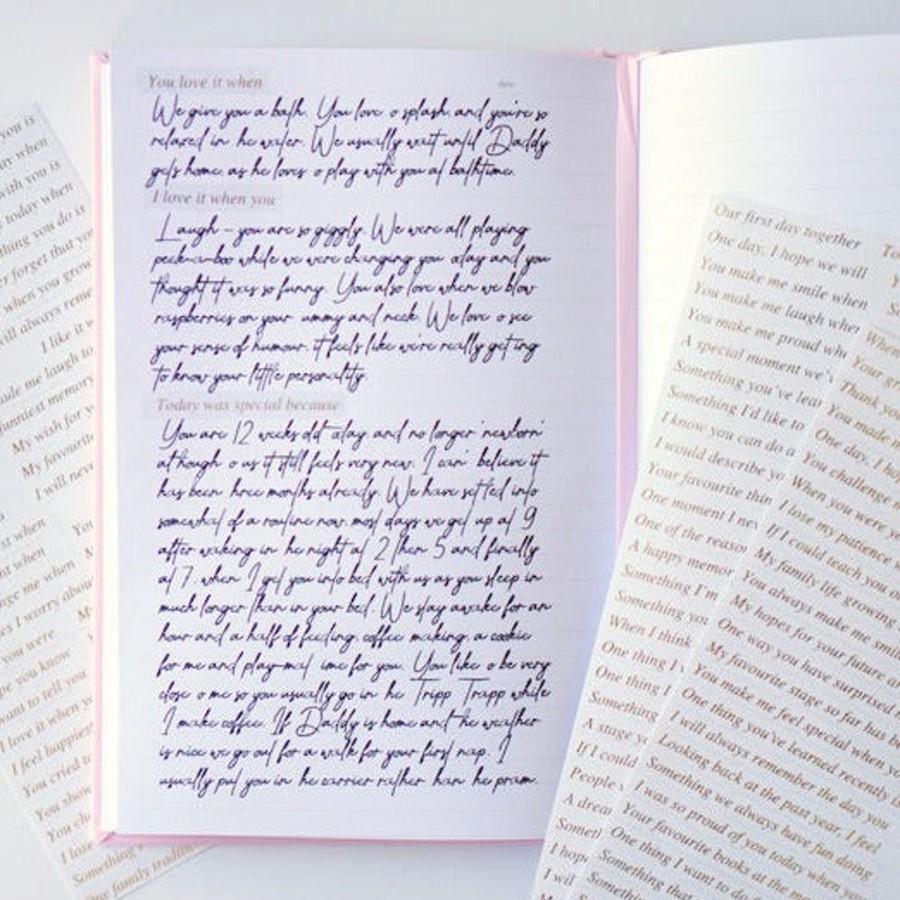 you is
ay when
with you is
today when
thing you do is
er forget that you
when you grow
will always reme
I like it w
ade me laugh to
funniest memory
My wish for y
My favourite
I will never
st when
ent when
nge me when
es I worry about
you were
pe you know
want to tell you
I love it when y
I feel happiest
You cried to
You show
You
I love
Something
One family tradition
You love it when
date
We give you a bath. You love o splash, and you're so
relaxed in he water. We usually wait until Daddy
gets home, as he loves o play with you at bathtime.
I love it when you
Laugh - you are so giggly. We were all playing
peek-a-boo while we were changing you oday and you
thought it was so funny. You also love when we blow
raspberries on your ummy and neck. We love o see
your sense of humour, it feels like we're really get ing
to know your little personality.
Today was special because
You are 12 weeks old oday and no longer 'newborn'
al hough o us it still feels very new. I can' believe it
has been hree months already. We have set led into
somewhat of a routine now, most days we get up at 9
after waking in he night at 2 then 5 and finally
at 7, when I get you into bed with us as you sleep in
much longer than in your bed. We stay awake for an
hour and a half of feeding, coffee making, a cookie
for me and play-mat ime for you. You like o be very
close o me so you usually go in he Tripp Trapp while
I make coffee. If Daddy is home and the weather
is nice we go out for a walk for your first nap. I
usually put you in he carrier rather han he pram.
Our first day together
One day, I hope we will
You make me smile when
You make me laugh when
You make me proud wh
A special moment we'v
Something you've lear
Something I'd like to
I know you can do a
I would describe yo
Your favourite thin
One moment I nev
One of the reason
A happy memor
Something I'm
Something you
When I think
One thing I
One thing I
Something
A stage y
If I could
People
A dream
Someth
I hope
I wil
When
Your gr
Thank you
You made m
One day, I h
You challenge m
When you were y
I lose my patience
If I could teach you
My family life growing
You always make me smi
My hopes for your future a
One way you have surprised
My favourite stage so far has b
You make me feel special when yo
One thing you've learned recently i
I will always remember the day you
Looking back at the past year, I feel
Something we always have fun doing
I was so proud of you today when you
Your favourite books at the mom
One thing I want to do m
Something that